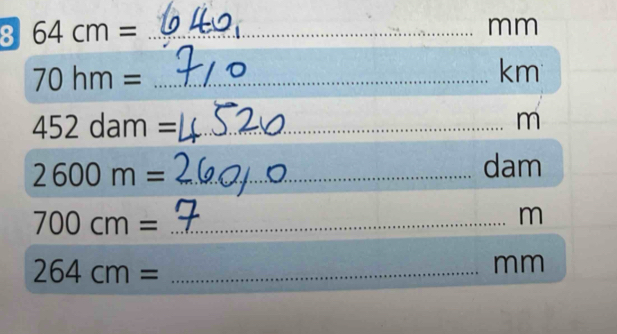 8 64 cm = 640, mm
70 hm = 7,0 km
452 dam = 4520 m
2 600 m = 260,0 dam
700 cm = 7 m
264 cm = mm